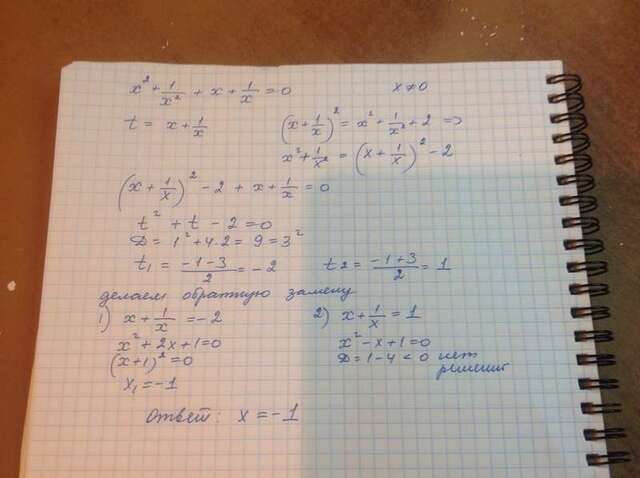 x² + 1/x² + x + 1/x = 0 x ≠ 0
t = x + 1/x (x + 1/x)² = x² + 1/x² + 2 =>
x² + 1/x² = (x + 1/x)² - 2
(x + 1/x)² - 2 + x + 1/x = 0
t² + t - 2 = 0
D = 1² + 4·2 = 9 = 3²
t₁ = (-1-3)/2 = -2 t₂ = (-1+3)/2 = 1
делаем обратную замену
1) x + 1/x = -2 2) x + 1/x = 1
x² + 2x + 1 = 0 x² - x + 1 = 0
(x+1)² = 0 D = 1 - 4 < 0 нет
решений
x₁ = -1
Ответ: x = -1